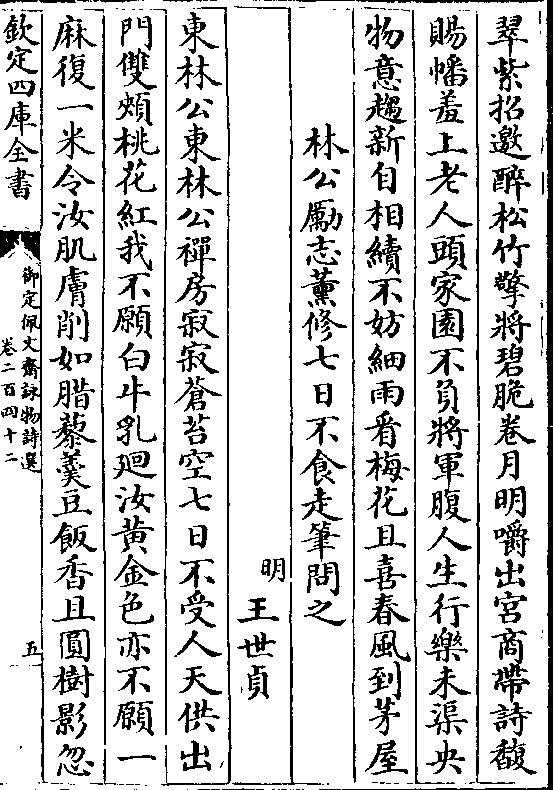 翠紫招邀醉松竹擎將碧脆卷月明嚼出宮商帶詩馥
賜幡羞上老人頭家園不負將軍腹人生行樂未渠央
物意趨新自相續不妨細雨看梅花且喜春風到茅屋
林公勵志薰修七日不食走筆問之
明 王世貞
東林公東林公禪房寂寂蒼苔空七日不受人天供出
門雙頰桃花紅我不願白牛乳廻汝黃金色亦不願一
麻復一米令汝肌膚削如腊藜羹豆飯香且圓樹影忽
欽定四庫全書
御定佩文齋詠物詩選
卷二百四十二
五